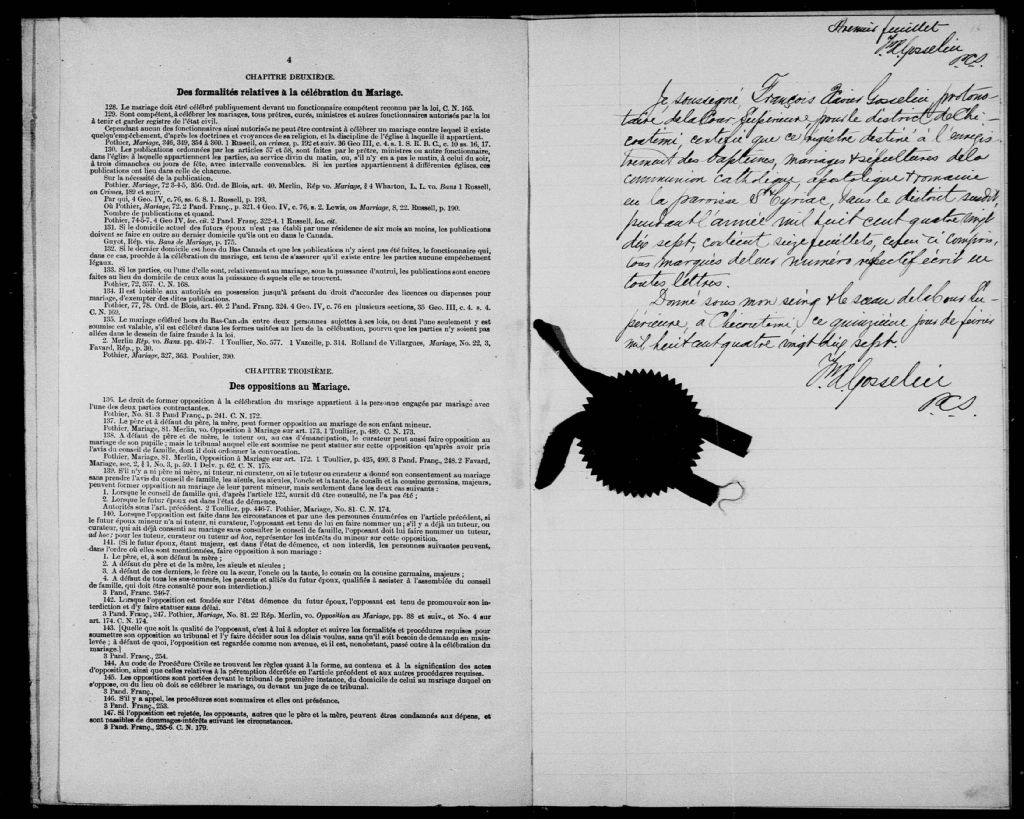 4
CHAPITRE DEUXIÈME.
Des formalités relatives à la célébration du Mariage.
128. Le mariage doit être célébré publiquement devant un fonctionnaire compétent reconnu par la loi, C. N. 165.
129. Sont compétent, à célébrer les mariages, tous prêtres, curés, ministres et autres fonctionnaires autorisés par la loi
à tenir et garder registre de l'état civil.
Cependant aucun des fonctionnaires ainsi autorisés ne peut être contraint à célébrer un mariage contre lequel il existe
quelqu'empêchement, d'après les doctrines et croyances de sa religion, et la discipline de l'église à laquelle il appartient.
Pothier, Mariage, 346, 349, 354 & 360. 1 Russell, on crimes, p. 192 et suiv. 36 Geo III, c. 4. s. 1. S. R. B. C., c. 10 ss. 16, 17.
130. Les publications ordonnées par les articles 57 et 58, sont faites par le prêtre, ministres ou autre fonctionnaire,
dans l'église à laquelle appartiennent les parties, au service divin du matin, ou, s'il n'y en a pas le matin, à celui du soir,
à trois dimanches ou jours de fête, avec intervalle convenables. Si les parties appartiennent à différentes églises, ces
publications ont lieu dans celle de chacune.
Sur la nécessité de la publication.
Pothier, Mariage, 72 3-4-5, 356. Ord. de Blois, art. 40. Merlin, Rép vo. Mariage, § 4 Wharton, L. L. vo. Bans 1 Russell,
on Crimes, 189 et suiv.
Par qui, 4 Geo IV, c. 76, ss. 6. 8. 1. Russell, p. 193.
Où Pothier, Mariage, 72. 2 Pand. Franç., p. 321. 4 Geo IV, c. 76, s. 2. Lewis, on Marriage, 8, 22. Russell, p. 190.
Nombre de publications et quand.
Pothier, 74-5-7. 4 Geo IV, loc. cit. 2 Pand. Franç. 322-4. 1 Russell, loc. cit.
131. Si le domicile actuel des futurs époux n'est pas établi par une résidence de six mois au moins, les publications
doivent se faire en outre au dernier domicile qu'ils ont eu dans le Canada.
Guyot, Rép. vis. Bans de Mariage, p. 175.
132. Si le dernier domicile est hors du Bas Canada et que les publications n'y aient pas été faites, le fonctionnaire qui,
dans ce cas, procède à la célébration du mariage, est tenu de s'assurer qu'il existe entre les parties aucune empêchement
légaux.
133. Si les parties, ou l'une d'elle sont, relativement au mariage, sous la puissance d'autrui, les publications sont encore
faites au lieu du domicile de ceux sous la puissance desquels elle se trouvent.
Pothier, 72, 357. C. N. 168.
134. Il est loisible aux autorités en possession jusqu'à présent du droit d'accorder des licences ou dispenses pour
mariage, d'exempter des dites publications.
Pothier, 77, 78. Ord. de Blois, art. 40. 2 Pand. Franç. 324. 4 Geo IV, c. 76 en plusieurs sections, 35 Geo. III, c. 4. s. 4.
C. N. 169.
135. Le mariage célébré hors du Bas-Canada entre deux personnes sujettes à ses lois, ou dont l'une seulement y est
soumise est valable, s'il est célébré dans les formes usitées au lieu de la célébration, pourvu que les parties n'y soient pas
allées dans le dessein de faire fraude à la loi.
2. Merlin Rép. vo. Bans. pp. 436-7. 1 Toullier, No. 577. 1 Vazeille, p. 314. Rolland de Villargues, Mariage, No. 22, 3,
Favard, Rép., p. 30.
Pothier, Mariage, 327, 363. Pouhier, 390.
CHAPITRE TROISIÈME.
Des oppositions au Mariage.
136. Le droit de former opposition à la célébration du mariage appartient à la personne engagée par mariage avec
l'une des deux parties contractantes.
Pothier, No. 81. 3 Pand Franç., p. 241. C. N. 172.
137. Le père et à défaut du père, la mère, peut former opposition au mariage de son enfant mineur.
Pothier, Mariage, 81. Merlin, vo. Opposition à Mariage sur art. 173. 1 Toullier, p. 489. C. N. 173.
138. A défaut de père et de mère, le tuteur ou, au cas d'émancipation, le curateur peut aussi faire opposition au
mariage de son pupille; mais le tribunal auquel elle est soumise ne peut statuer sur cette opposition qu'après avoir pris
l'avis du conseil de famille, dont il doit ordonner la convocation.
Pothier, Mariage, 81. Merlin, Opposition à Mariage sur art. 172. 1 Toullier, p. 425, 490. 3 Pand. Franç., 248. 2 Favard,
Mariage, sec. 2, § 1, No. 3, p. 59. 1 Delv. p. 62. C. N. 175.
139. S'il n'y a ni père ni mère, ni tuteur, ni curateur, ou si le tuteur ou curateur a donné son consentement au mariage
sans prendre l'avis du conseil de famille, les aïeuls, les aïeules, l'oncle et la tante, le cousin et la cousine germains, majeurs,
peuvent former opposition au mariage de leur parent mineur, mais seulement dans les deux cas suivants :
1. Lorsque le conseil de famille qui, d'après l'article 122, aurait dû être consulté, ne l'a pas été ;
2. Lorsque le futur époux est dans l'état de démence.
Autorités sous l'art. précédent. 2 Toullier, pp. 446-7. Pothier, Mariage, No. 81. C. N. 174.
140. Lorsque l'opposition est faite dans les circonstances et par une des personnes énumérées en l'article précédent, si
le futur époux mineur n'a ni tuteur, ni curateur, l'opposant est tenu de lui en faire nommer un; s'il y a déjà un tuteur, ou
curateur, qui ait déjà consenti au mariage sans consulter le conseil de famille, l'opposant doit lui faire nommer un tuteur,
ad hoc; pour les tuteur, curateur ou tuteur ad hoc, représenter les intérêts du mineur sur cette opposition.
141. (Si le futur époux, étant majeur, est dans l'état de démence, et non interdit, les personnes suivantes peuvent,
dans l'ordre où elles sont mentionnées, faire opposition à son mariage :
1. Le père, et, à son défaut la mère ;
2. A défaut du père et de la mère, les aïeuls et aïeules ;
3. A défaut de ces derniers, le frère ou la sœur, l'oncle ou la tante, le cousin ou la cousine germains, majeurs ;
4. A défaut de tous les sus-nommés, les parents et alliés du futur époux, qualifiés à assister à l'assemblée du conseil
de famille, qui doit être consulté pour son interdiction.)
3 Pand. Franc. 246-7.
142. Lorsque l'opposition est fondée sur l'état démence du futur époux, l'opposant est tenu de promouvoir son in-
terdiction et d'y faire statuer sans délai.
3 Pand. Franç., 247. Pothier, Mariage, No. 81. 22 Rép. Merlin, vo. Opposition au Mariage, pp. 88 et suiv., et No. 4 sur
art. 174. C. N. 174.
143. [Quelle que soit la qualité de l'opposant, c'est à lui à adopter et suivre les formalités et procédures requises pour
soumettre son opposition au tribunal et l'y faire décider sous les délais voulus, sans qu'il soit besoin de demande en main-
levée; à défaut de quoi, l'opposition est regardée comme non avenue, et il est, nonobstant, passé outre à la célébration du
mariage.]
3 Pand. Franç., 254.
144. Au code de Procédure Civile se trouvent les règles quant à la forme, au contenu et à la signification des actes
d'opposition, ainsi que celles relatives à la péremption décrétée en l'article précédent et aux autres procédures requises.
145. Les oppositions sont portées devant le tribunal de première instance, du domicile de celui au mariage duquel on
s'oppose, ou du lieu où doit se célébrer le mariage, ou devant un juge de ce tribunal.
3 Pand. Franç.,
146. S'il y a appel, les procédures sont sommaires et elles ont préséance.
3 Pand. Franç., 253.
147. Si l'opposition est rejetée, les opposants, autres que le père et la mère, peuvent être condamnés aux dépens, et
sont passibles de dommages-intérêts suivant les circonstances.
3 Pand. Franç., 255-6. C. N. 179.
Premier feuillet
F. X. Gosselin
P.C.S.
Je soussigné, François Xavier Gosselin, protono-
taire de la Cour Supérieure pour le district de Chi-
coutimi, certifie que ce registre destiné à l'enregis-
trement des baptêmes, mariages & sépultures de la
communion catholique, apostolique & romaine
en la paroisse St Cyriac, dans le district susdit,
pendant l'année mil huit cent quatre vingt
dix sept, contient seize feuillets, ce feui ci compris,
tous marqués de leur numéro respectif écrit en
toutes lettres.
Donné sous mon seing & le sceau de la Cour Su-
périeure, à Chicoutimi, ce quinzième jour de février
mil huit cent quatre vingt dix sept.
F. X. Gosselin
P.C.S.